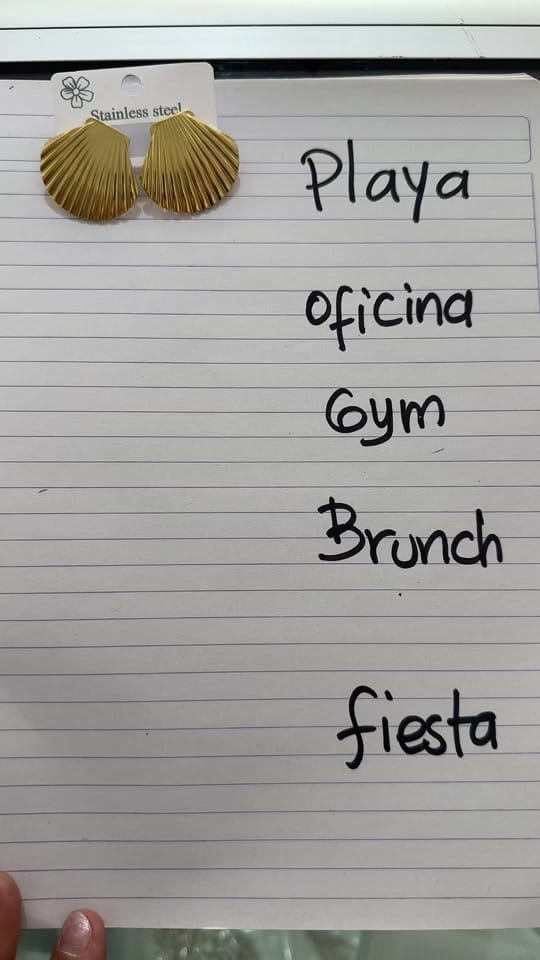 Stainless steel
Playa
oficina
Gym
Brunch
fiesta